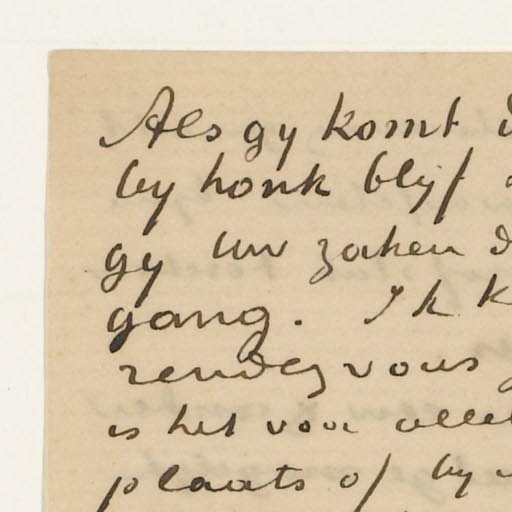 Als gy komt
by honk blyf
gy uw zaken
gang. Ik k
rendez vous
is het voor alleb
plaats of by